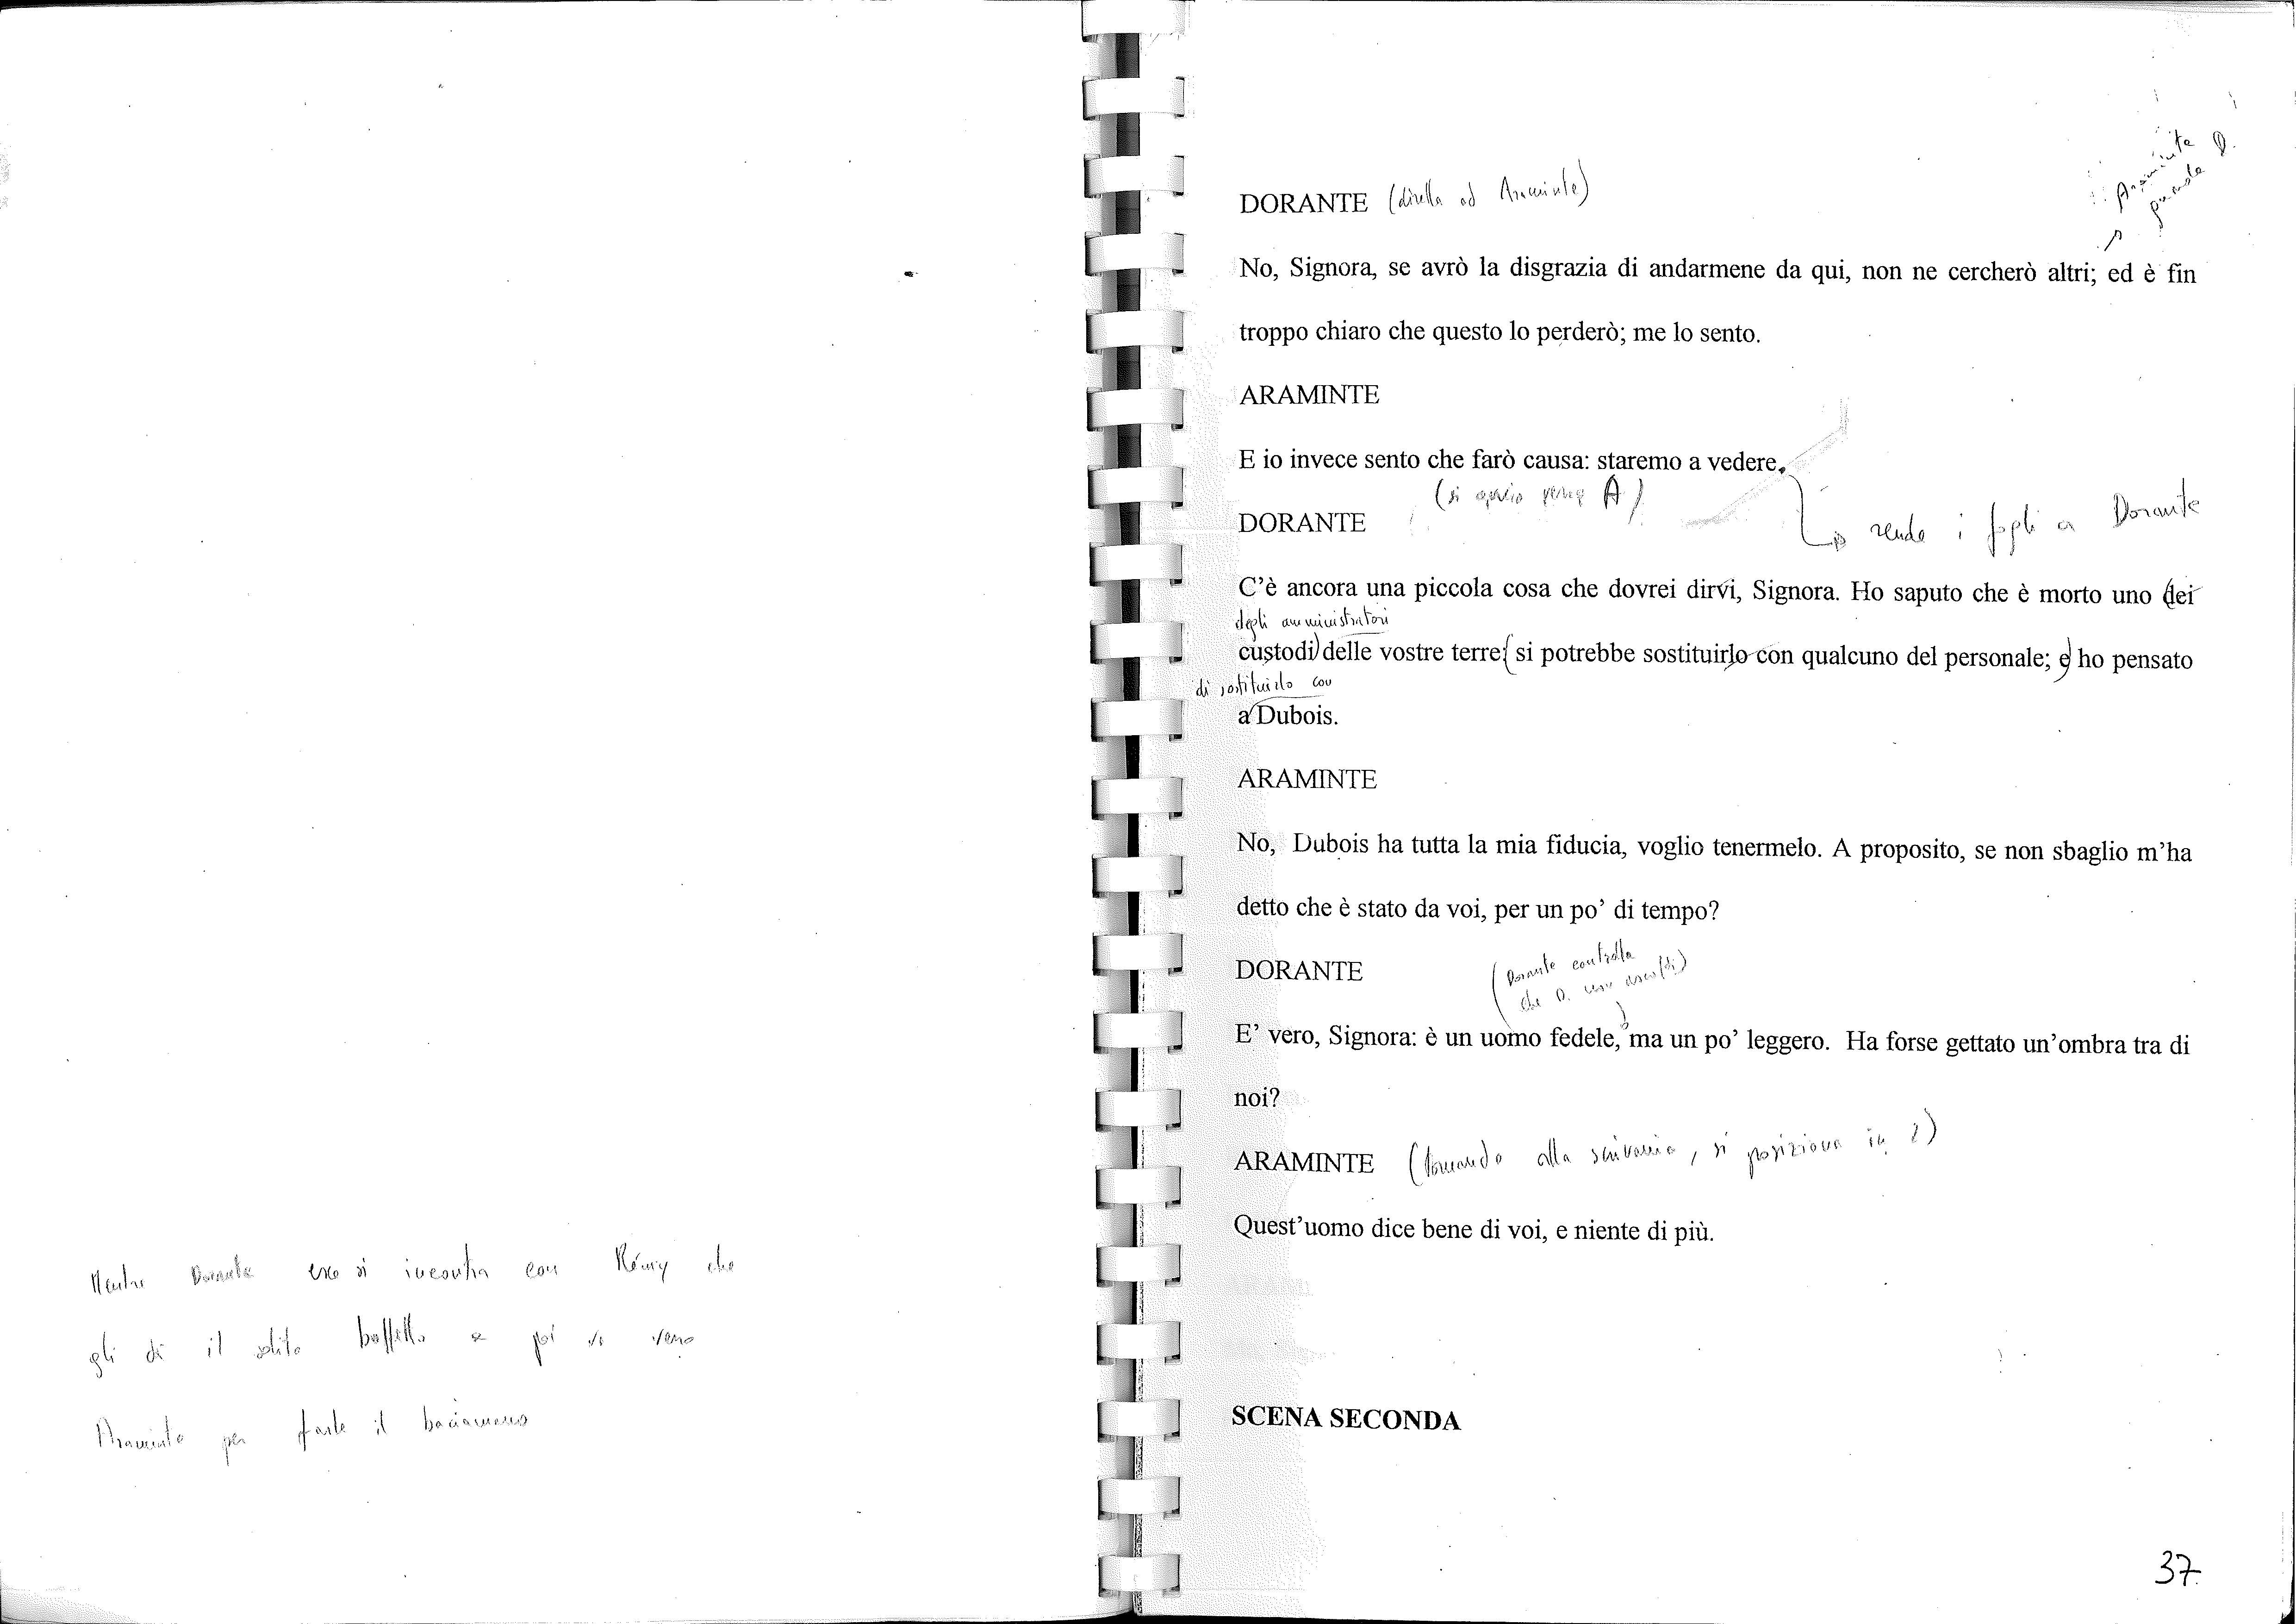 Mentre Dorante esce si incontra con Rémy che
gli dà il solito buffetto e poi va verso
Araminte per farle il baciamano
Araminte
guarda D.
DORANTE (diretto ad Araminte)
No, Signora, se avrò la disgrazia di andarmene da qui, non ne cercherò altri; ed è fin
troppo chiaro che questo lo perderò; me lo sento.
ARAMINTE
E io invece sento che farò causa: staremo a vedere.
(si verso A)
rende i fogli a Dorante
DORANTE
C'è ancora una piccola cosa che dovrei dirvi, Signora. Ho saputo che è morto uno (dei
degli amministratori
custodi) delle vostre terre: (si potrebbe sostituirlo con qualcuno del personale; e) ho pensato
di sostituirlo con
a Dubois.
ARAMINTE
No, Dubois ha tutta la mia fiducia, voglio tenermelo. A proposito, se non sbaglio m'ha
detto che è stato da voi, per un po' di tempo?
DORANTE
(Dorante controlla
che D. non ascolti)
E' vero, Signora: è un uomo fedele, ma un po' leggero. Ha forse gettato un'ombra tra di
noi?
ARAMINTE (tornando alla scrivania, si posiziona in 2)
Quest'uomo dice bene di voi, e niente di più.
SCENA SECONDA
37